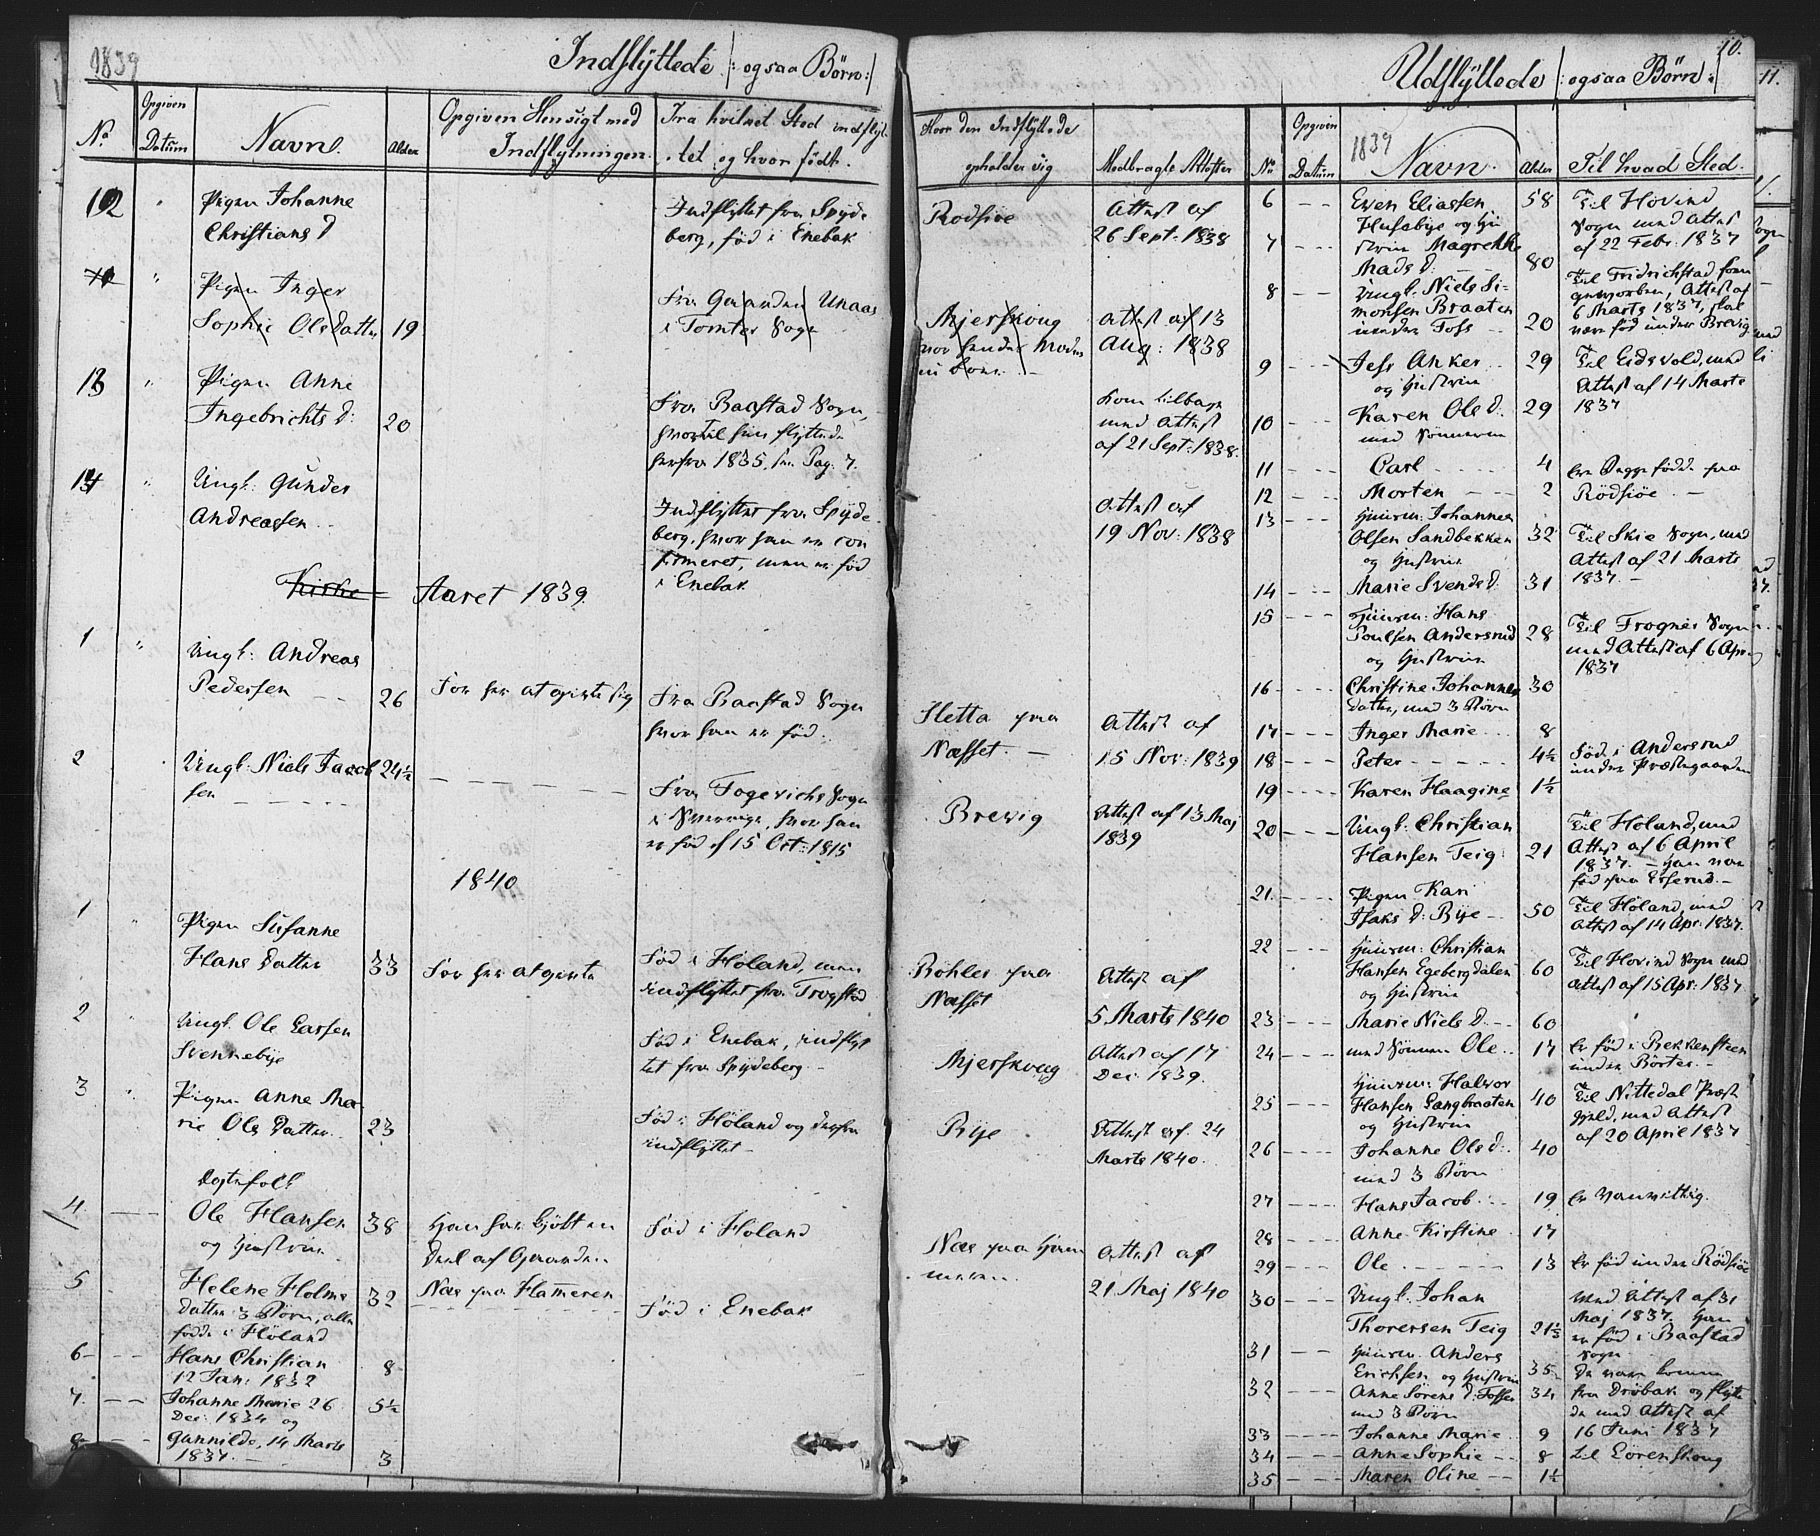 1839
Indflÿttede |: ogsaa Børn :|
No
Opgiven
Datum
Navn.
Alder
Opgiven Hensigt med
Indflytningen.
Fra hvilket Sted indflyt-
tet og hvor født.
Hvor den Indflyttede
opholder sig
Medbragte Attester
12 "
Pigen Johanne
Christians D
Indflyttet fra Spÿde
berg, fød i Enebak
Rødsiøe
Attest af
26 Sept: 1838
"
Pigen Inger
Sophie Ols Datter 19
Fra Gaarden Unaas
i Tomter Sogn
Mjerskoug
hos hendes Moder
Attest af 13
Aug: 1838
13 "
Pigen Anne
Ingebrichts d: 20
Fra Baastad Sogn,
hvortil hun flyttede
herfra 1835, see Pag. 7.
Kom tilbage
med Attest
af 21 Sept: 1838.
14 "
Ungk: Gunder
Andreassen
Indflyttet fra Spÿde
berg, hvor han er con
firmeret, men er fød
i Enebak
Attest af
19 Nov: 1838
Kirke Aaret 1839.
1 "
Ungk: Andreas
Pedersen - - 26
For her at givte sig
Fra Baastad Sogn
hvor han er fød.
Sletta paa
Næsset. -
Attest af
15 Nov: 1839
2
Ungk: Niels Jacob 24½
sen
Fra Fogerichs Sogn
i Sverrige, hvor han
er fød d 15 Oct: 1815
Brevig
Attest af 13 Maj
1839
1840
1 "
Pigen Susanne
Hans Datter 33
For her at givte
Fød i Høland, men
indflyttet fra Trygstad
Bøhler paa
Næsset
Attest af
5 Marts 1840
2 "
Ungk. Ole Larsen
Svennebÿe
Fød i Enebak, indflyt
tet fra Spydeberg -
Mjerskoug
Attest af 17
Dec: 1839.
3 "
Pigen Anne Ma-
rie Ols Datter 23
Fød i Høland og derfra
indflyttet -
Bÿe
Attest af 24
Marts 1840.
Ægtefolk
4.
Ole Hansen 38
og Hustrue
Han har kjøbt en
Deel af Gaarden
Fød i Høland
Nær paa Ham
meren.
Attest af
21 Maj 1840
5
Helene Holms 32
Datter 3 Børn, alle
fødde i Høland
Nær paa Hammeren
Fød i Enebak
6 - - -
Hans Christian 8
12 Jan: 1832
7. - -
Johanne Marie 26 5½
Dec: 1834 og
8 - -
Gunnilde, 14 Marts
1837. - 3
10.
Udflÿttede |: ogsaa Børn :|
No
Opgiven
Datum
1837
Navn.
Alder
Til hvad Sted.
6
Even Eliassen 58
Husebye og Hu
Til Hovind
Sogn med Attest
af 22 Febr: 1837
7 - - -
strue Magrethe
Mads d: - - 80
8
Ungk. Niels Si-
monsen Braaten
under Toss - - 20
Til Fridrichstad som
gevorben, Attest af
6 Marts 1837, skal
være fød under Brevig
9 - - -
Jess Anker 29
og Hustrue
Til Eidsvold, med
Attest af 14 Marts
1837
10 - - -
Karen Ols d. 29
med Sønnerne
11 - - -
Carl - - - - 4
Ere begge fødde paa
12 - - -
Morten - - - 2
Rødsiøe. -
13 - - -
Huusm: Johannes
Olsen Sandbekken 32
og Hustrue
Til Skie Sogn, med
Attest af 21 Marts
1837. -
14 - - -
Marie Svends d. 31
15 - - -
Huusm: Hans
Poulsen Andersrud 28
og Hustrue
Til Frogner Sogn
med Attest af 6 Apr.
1837
16 - - -
Christine Johannes 30
datter, med 3 Børn
17 - - -
Inger Marie 8
18 - - -
Peter - - - - - 4½
Fød i Andersrud
under Præstegaarden
19 - - -
Karen Haagine 1½
20 - - -
Ungk: Christian
Hansen Teig 21
Til Høland, med
Attest af 6 April
1837. - Han var
fød paa Eserud. -
21. - - -
Pigen Kari
Isaks d: Bÿe - - 50
Til Høland, med
Attest af 14 Apr: 1837.
22 - - -
Huusm: Christian
Hansen Egebergdalen 60
og Hustrue
Til Hovind Sogn med
Attest af 15 Apr: 1837
23 - - -
Marie Niels d. - - 60
24 - - -
med Sønnen Ole - - 17
Er fød i Bekkensteen
under Børter. -
25 - - -
Huusm: Halvor
Hansen Langbraaten 40
og Hustrue
Til Nittedal Præst
gjeld, med Attest
af 20 April 1837
26 - - -
Johanne Ols d: 40
med 3 Børn
27 - - -
Hans Jacob - - 19
Er vanvittig.
28 - - -
Anne Kirstine 17
29 - - -
Ole - - - - - 13
Er fød under Rødsiøe
30 - - -
Ungk: Johan
Thorersen Teig 21½
Med Attest af 31
Maj 1837. Han
er fød i Baastad
Sogn
31 - -
Huusm. Anders
Erichsen og Hustrue 35
De vare komne
32 - - -
Anne Sørens d: Tosse 34
med 3 Børn
fra Drøbak og flytte
de med Attest af
33 - - -
Johanne Marie 9
16 Juni 1837
34 - - -
Anne Sophie - - 8
til Lørenskoug
35 - - -
Maren Oline - - 1½
11.